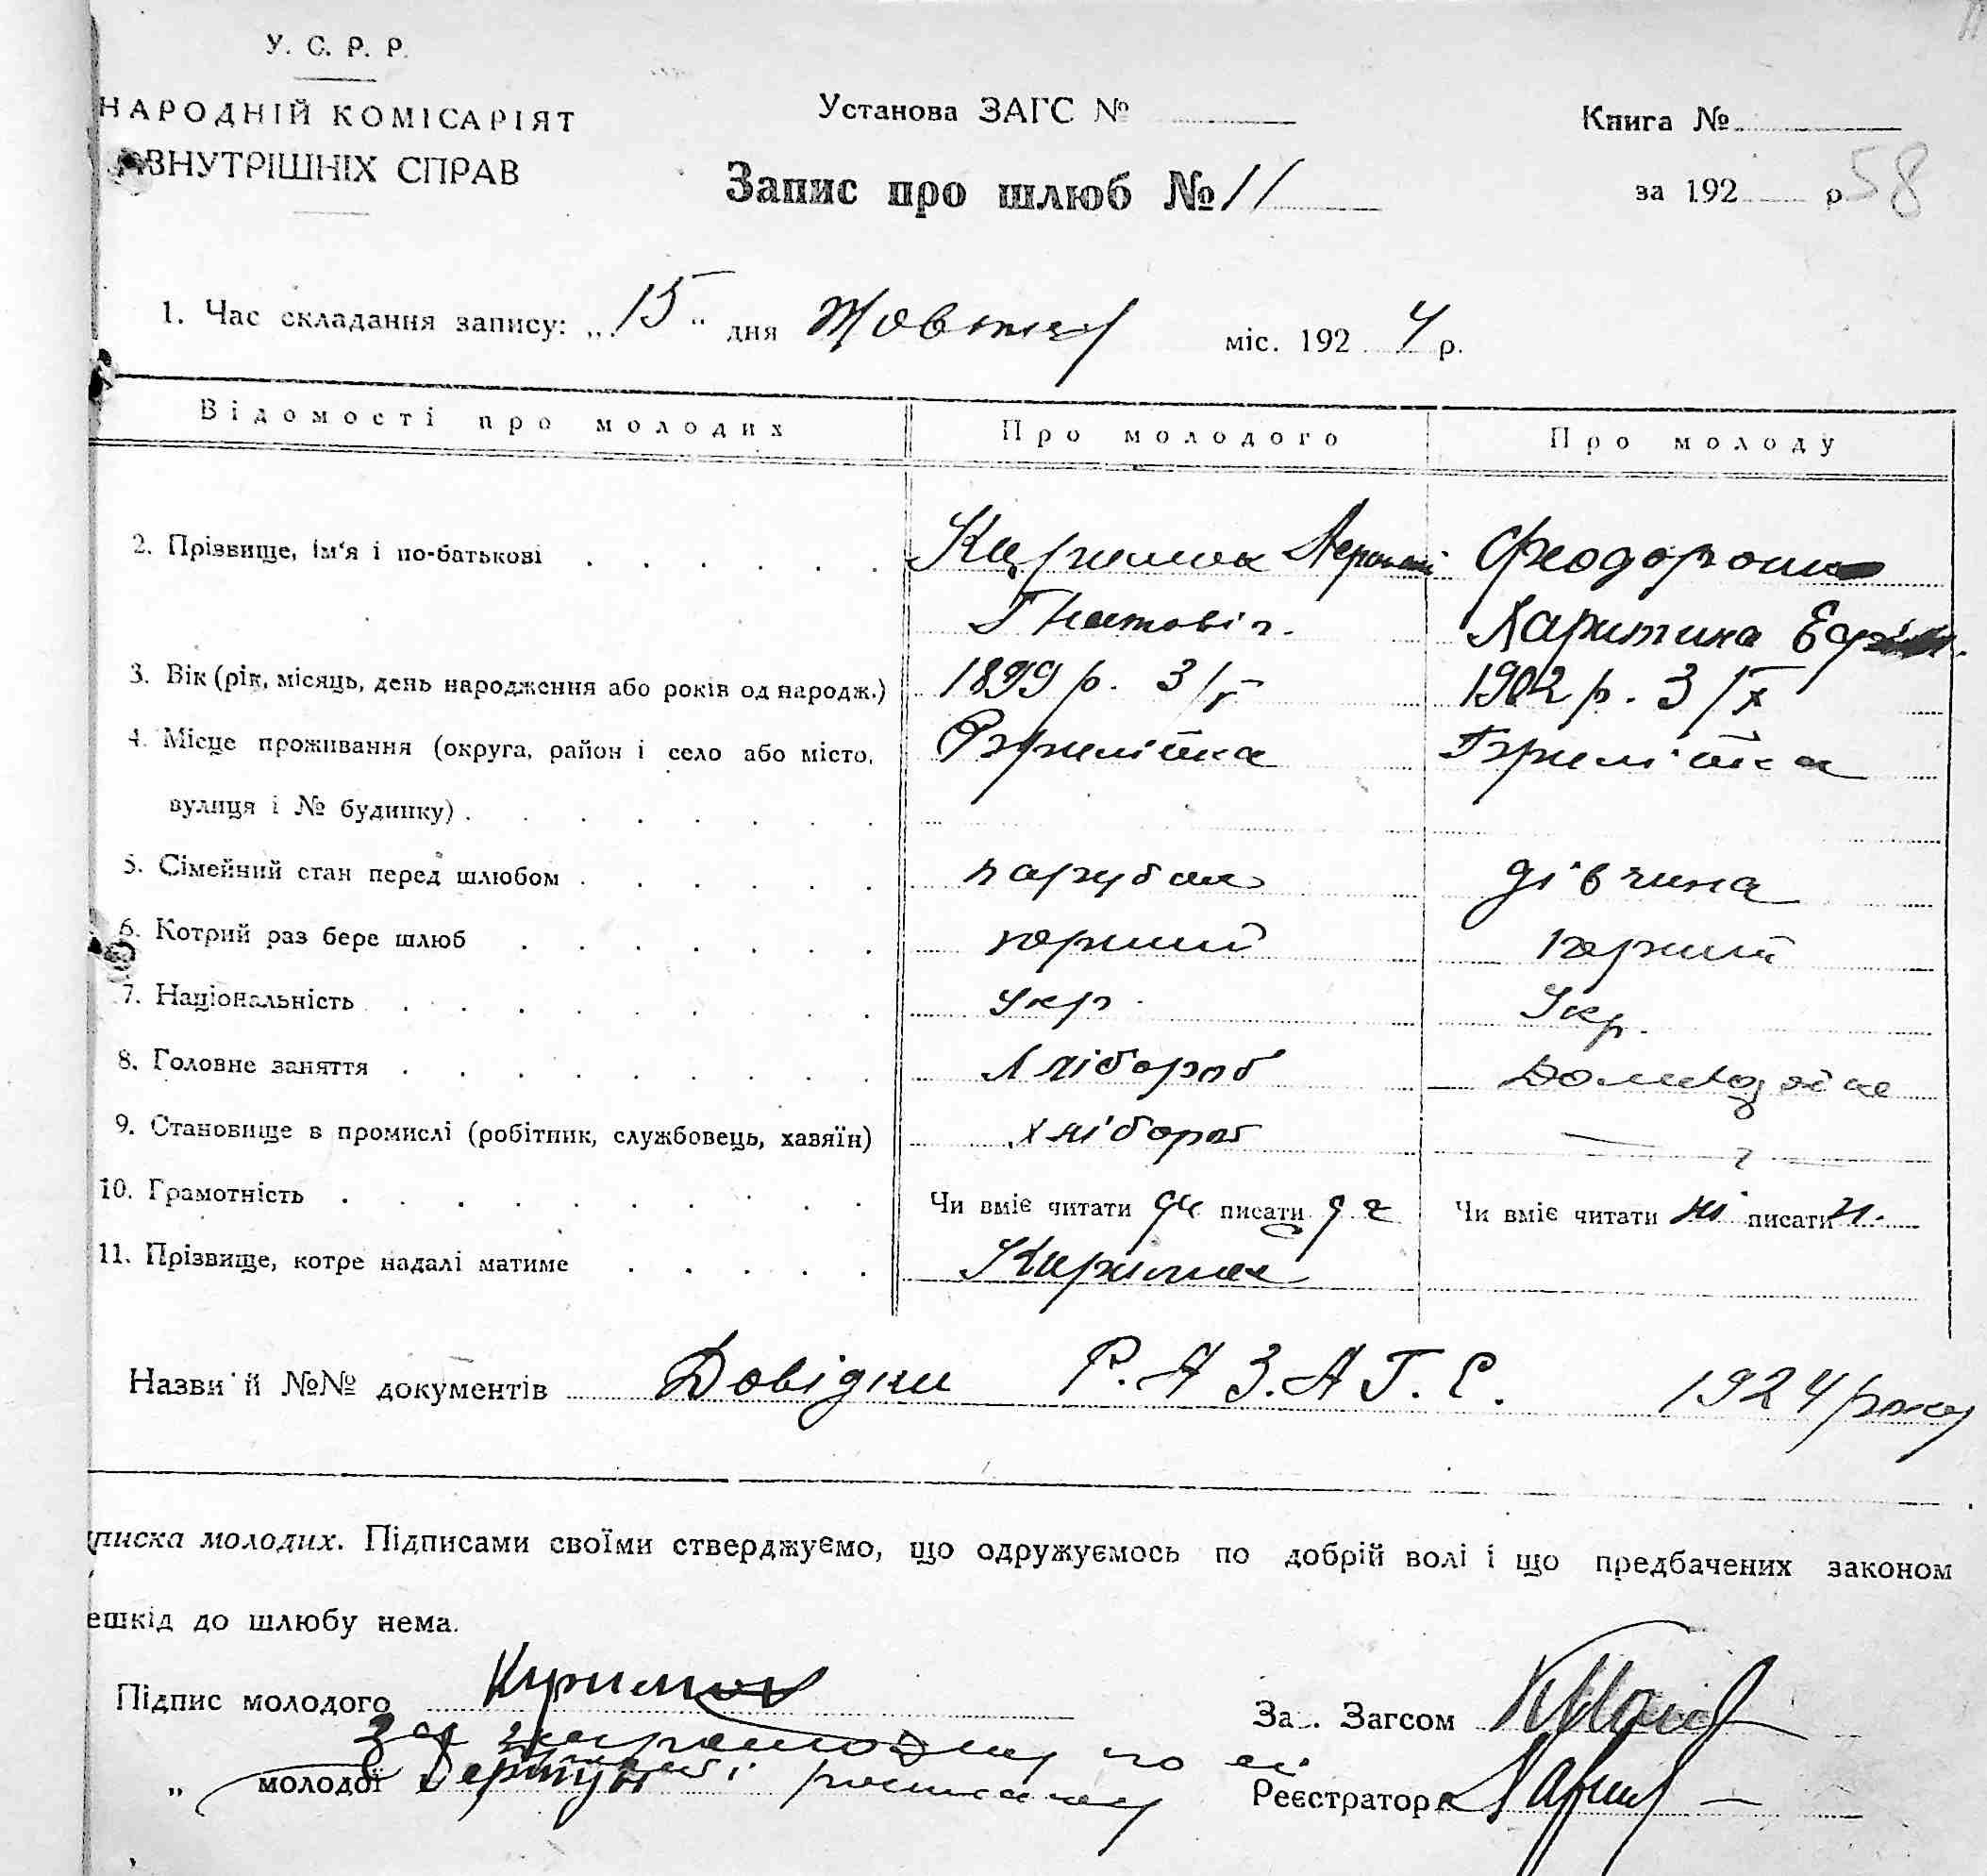 У. С. Р. Р.
НАРОДНІЙ КОМІСАРІЯТ
ВНУТРІШНІХ СПРАВ
Установа ЗАГС №
Книга №
Запис про шлюб № 11
за 192 р
58
1. Час складання запису: „15“ дня Жовтня міс. 1924 р.
Відомості про молодих Про молодого Про молоду
2. Прізвище, ім'я і по-батькові
Гнатовіч. Харитина
3. Вік (рік, місяць, день народження або років од народж.) 1899 р. 3/V 1902 р. 3/X
4. Місце проживання (округа, район і село або місто,
вулиця і № будинку)
5. Сімейний стан перед шлюбом парубок дівчина
6. Котрий раз бере шлюб перший перший
7. Національність Укр Укр.
8. Головне заняття Хлібороб
9. Становище в промислі (робітник, службовець, хавяїн) хлібороб
10. Грамотність Чи вміє читати да писати да Чи вміє читати ні писати н.
11. Прізвище, котре надалі матиме
Назви й №№ документів Довідки Р.А З.А Г.С. 1924 року
писка молодих. Підписами своїми стверджуємо, що одружуємось по добрій волі і що предбачених законом
ешкід до шлюбу нема.
Підпис молодого
За Загсом
За неграмотну по её
„ молодої
Реєстратор